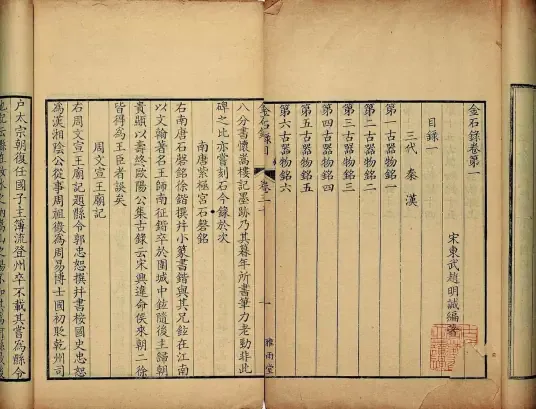 金石錄卷第一
宋東武趙明誠編著
目錄一
三代 秦 漢
第一古器物銘一
第二古器物銘二
第三古器物銘三
第四古器物銘四
第五古器物銘五
第六古器物銘六
金石錄目
卷三十
一
雅雨堂
八分書懷嵩樓記墨跡乃其暮年所書筆力老勁非此
碑之比亦嘗刻石今錄於次
南唐紫極宮石磬銘
右南唐石磬銘徐鍇撰并小篆書鍇與其兄鉉在江南
以文翰著名王師南征鍇卒於圍城中鉉隨後主歸朝
貴顯以壽終歐陽公集古錄云宋興違命侯來朝二徐
皆得為王臣者誤矣
周文宣王廟記
右周文宣王廟記題縣令郭忠恕撰并書校國史忠恕
為漢湘陰公從事周祖徵為周易博士國初貶乾州司
户太宗朝復任國子主簿流登州卒不載其嘗為縣令